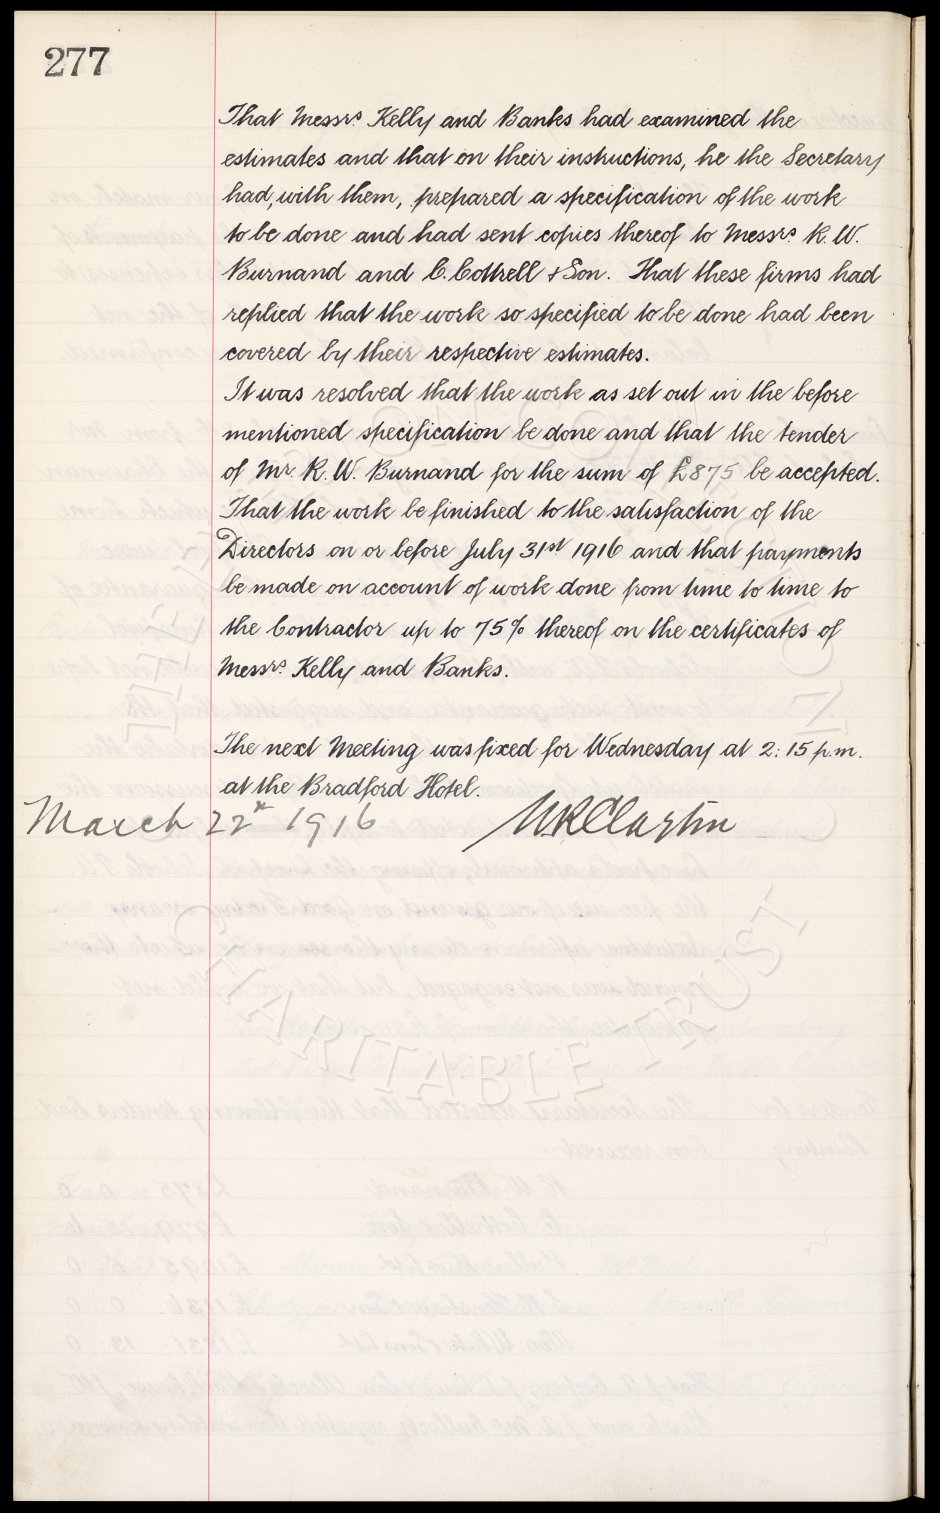 277
That Messrs. Kelly and Banks had examined the
estimates and that on their instructions, he the Secretary
had, with them, prepared a specification of the work
to be done and had sent copies thereof to Messrs. R. W.
Burnand and C. Cottrell & Son. That these firms had
replied that the work so specified to be done had been
covered by their respective estimates.
It was resolved that the work as set out in the before
mentioned specification be done and that the tender
of Mr. R. W. Burnand for the sum of £875 be accepted.
That the work be finished to the satisfaction of the
Directors on or before July 31st 1916 and that payments
be made on account of work done from time to time to
the Contractor up to 75% thereof on the certificates of
Messrs. Kelly and Banks.
The next Meeting was fixed for Wednesday at 2:15 p.m.
at the Bradford Hotel.
March 22nd 1916 W R Clayton
CHARITABLE TRUST